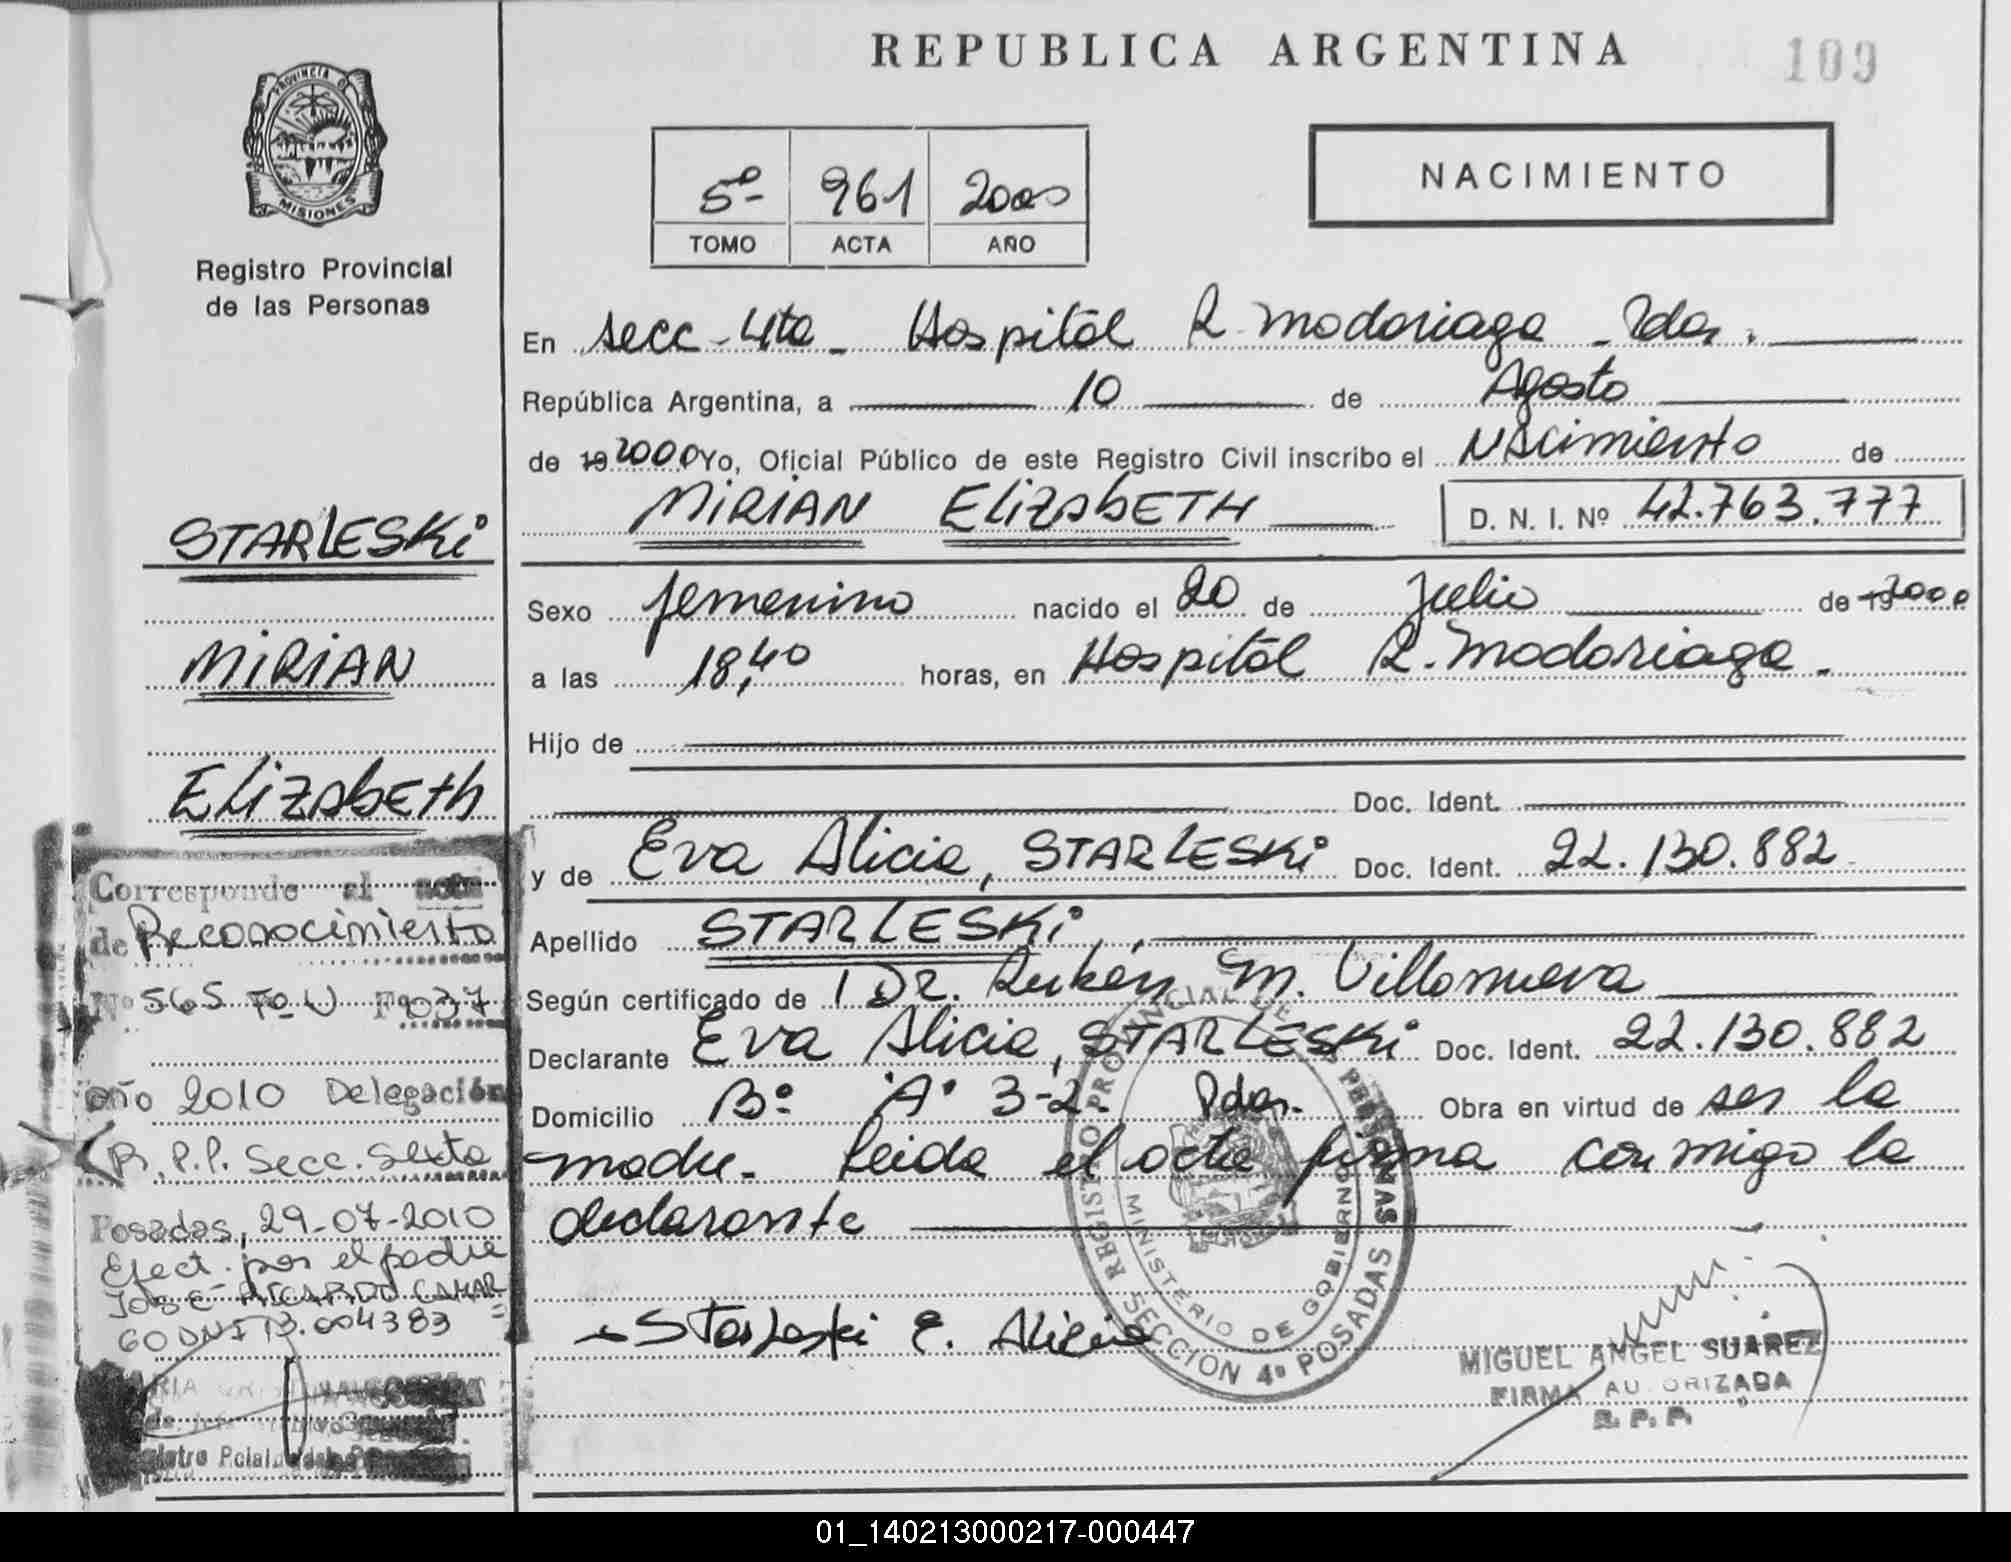 REPUBLICA ARGENTINA
109
PROVINCIA D
MISIONES
Registro Provincial
de las Personas
5º 961 2000
TOMO ACTA AÑO
NACIMIENTO
En secc-4ta - Hospital R. Madariaga - Pdas.
República Argentina, a 10 de Agosto
de 19 2000 Yo, Oficial Público de este Registro Civil inscribo el Nacimiento de
MiRiAN ELizAbETH D. N. I. Nº 42.763.777
Sexo femenino nacido el 20 de Julio de 19 2000
a las 18,40 horas, en Hospital R. Madariaga.
Hijo de
Doc. Ident.
y de Eva Alicia, STARLESKi Doc. Ident. 22.130.882
Apellido STARLESKi,
Según certificado de Dr. Rubén M. Villanueva
Declarante Eva Alicia, STARLESKi Doc. Ident. 22.130.882
Domicilio Bº "A" 3-2. Pdas. Obra en virtud de ser la
madre. Leida el acta firma conmigo la
declarante
Starleski E. Alicia
REGISTRO PROVINCIAL DE PERSONAS
MINISTERIO DE GOBIERNO
SECCION 4ª POSADAS
MIGUEL ANGEL SUAREZ
FIRMA AUTORIZADA
R. P. P.
STARLESKi
MiRiAN
ELizAbETh
Corresponde al acta
de Reconocimiento
Nº 565 Tº U Fº 037
año 2010 Delegación
R.P.P. Secc. Sexta
Posadas, 29-07-2010
Efect. por el padre
JOSE RICARDO CAMAR
GO DNI 13.004383
01_140213000217-000447